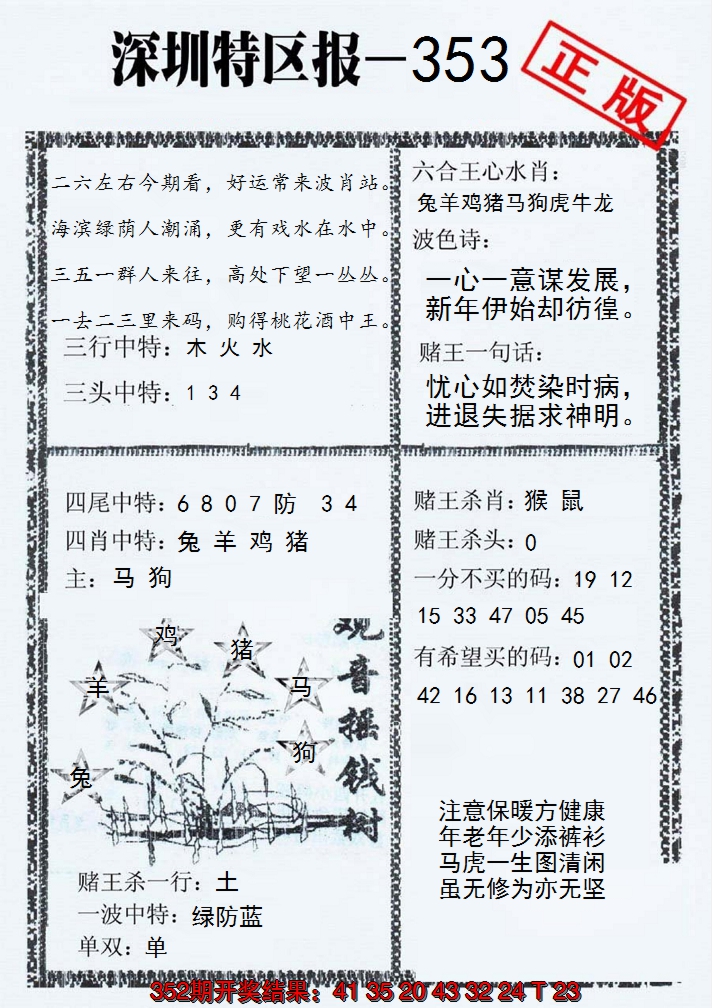 深圳特区报—353
正版
二六左右今期看，好运常来波肖站。
海滨绿荫人潮涌，更有戏水在水中。
三五一群人来往，高处下望一丛丛。
一去二三里来码，购得桃花酒中王。
三行中特：木 火 水
三头中特：1 3 4
六合王心水肖：
兔羊鸡猪马狗虎牛龙
波色诗：
一心一意谋发展，
新年伊始却彷徨。
赌王一句话：
忧心如焚染时病，
进退失据求神明。
四尾中特：6 8 0 7 防 3 4
四肖中特：兔 羊 鸡 猪
主：马 狗
鸡
猪
羊
马
狗
兔
观音摇钱树
赌王杀一行：土
一波中特：绿防蓝
单双：单
赌王杀肖：猴 鼠
赌王杀头：0
一分不买的码：19 12
15 33 47 05 45
有希望买的码：01 02
42 16 13 11 38 27 46
注意保暖方健康
年老年少添裤衫
马虎一生图清闲
虽无修为亦无坚
352期开奖结果：41 35 20 43 32 24 T 23